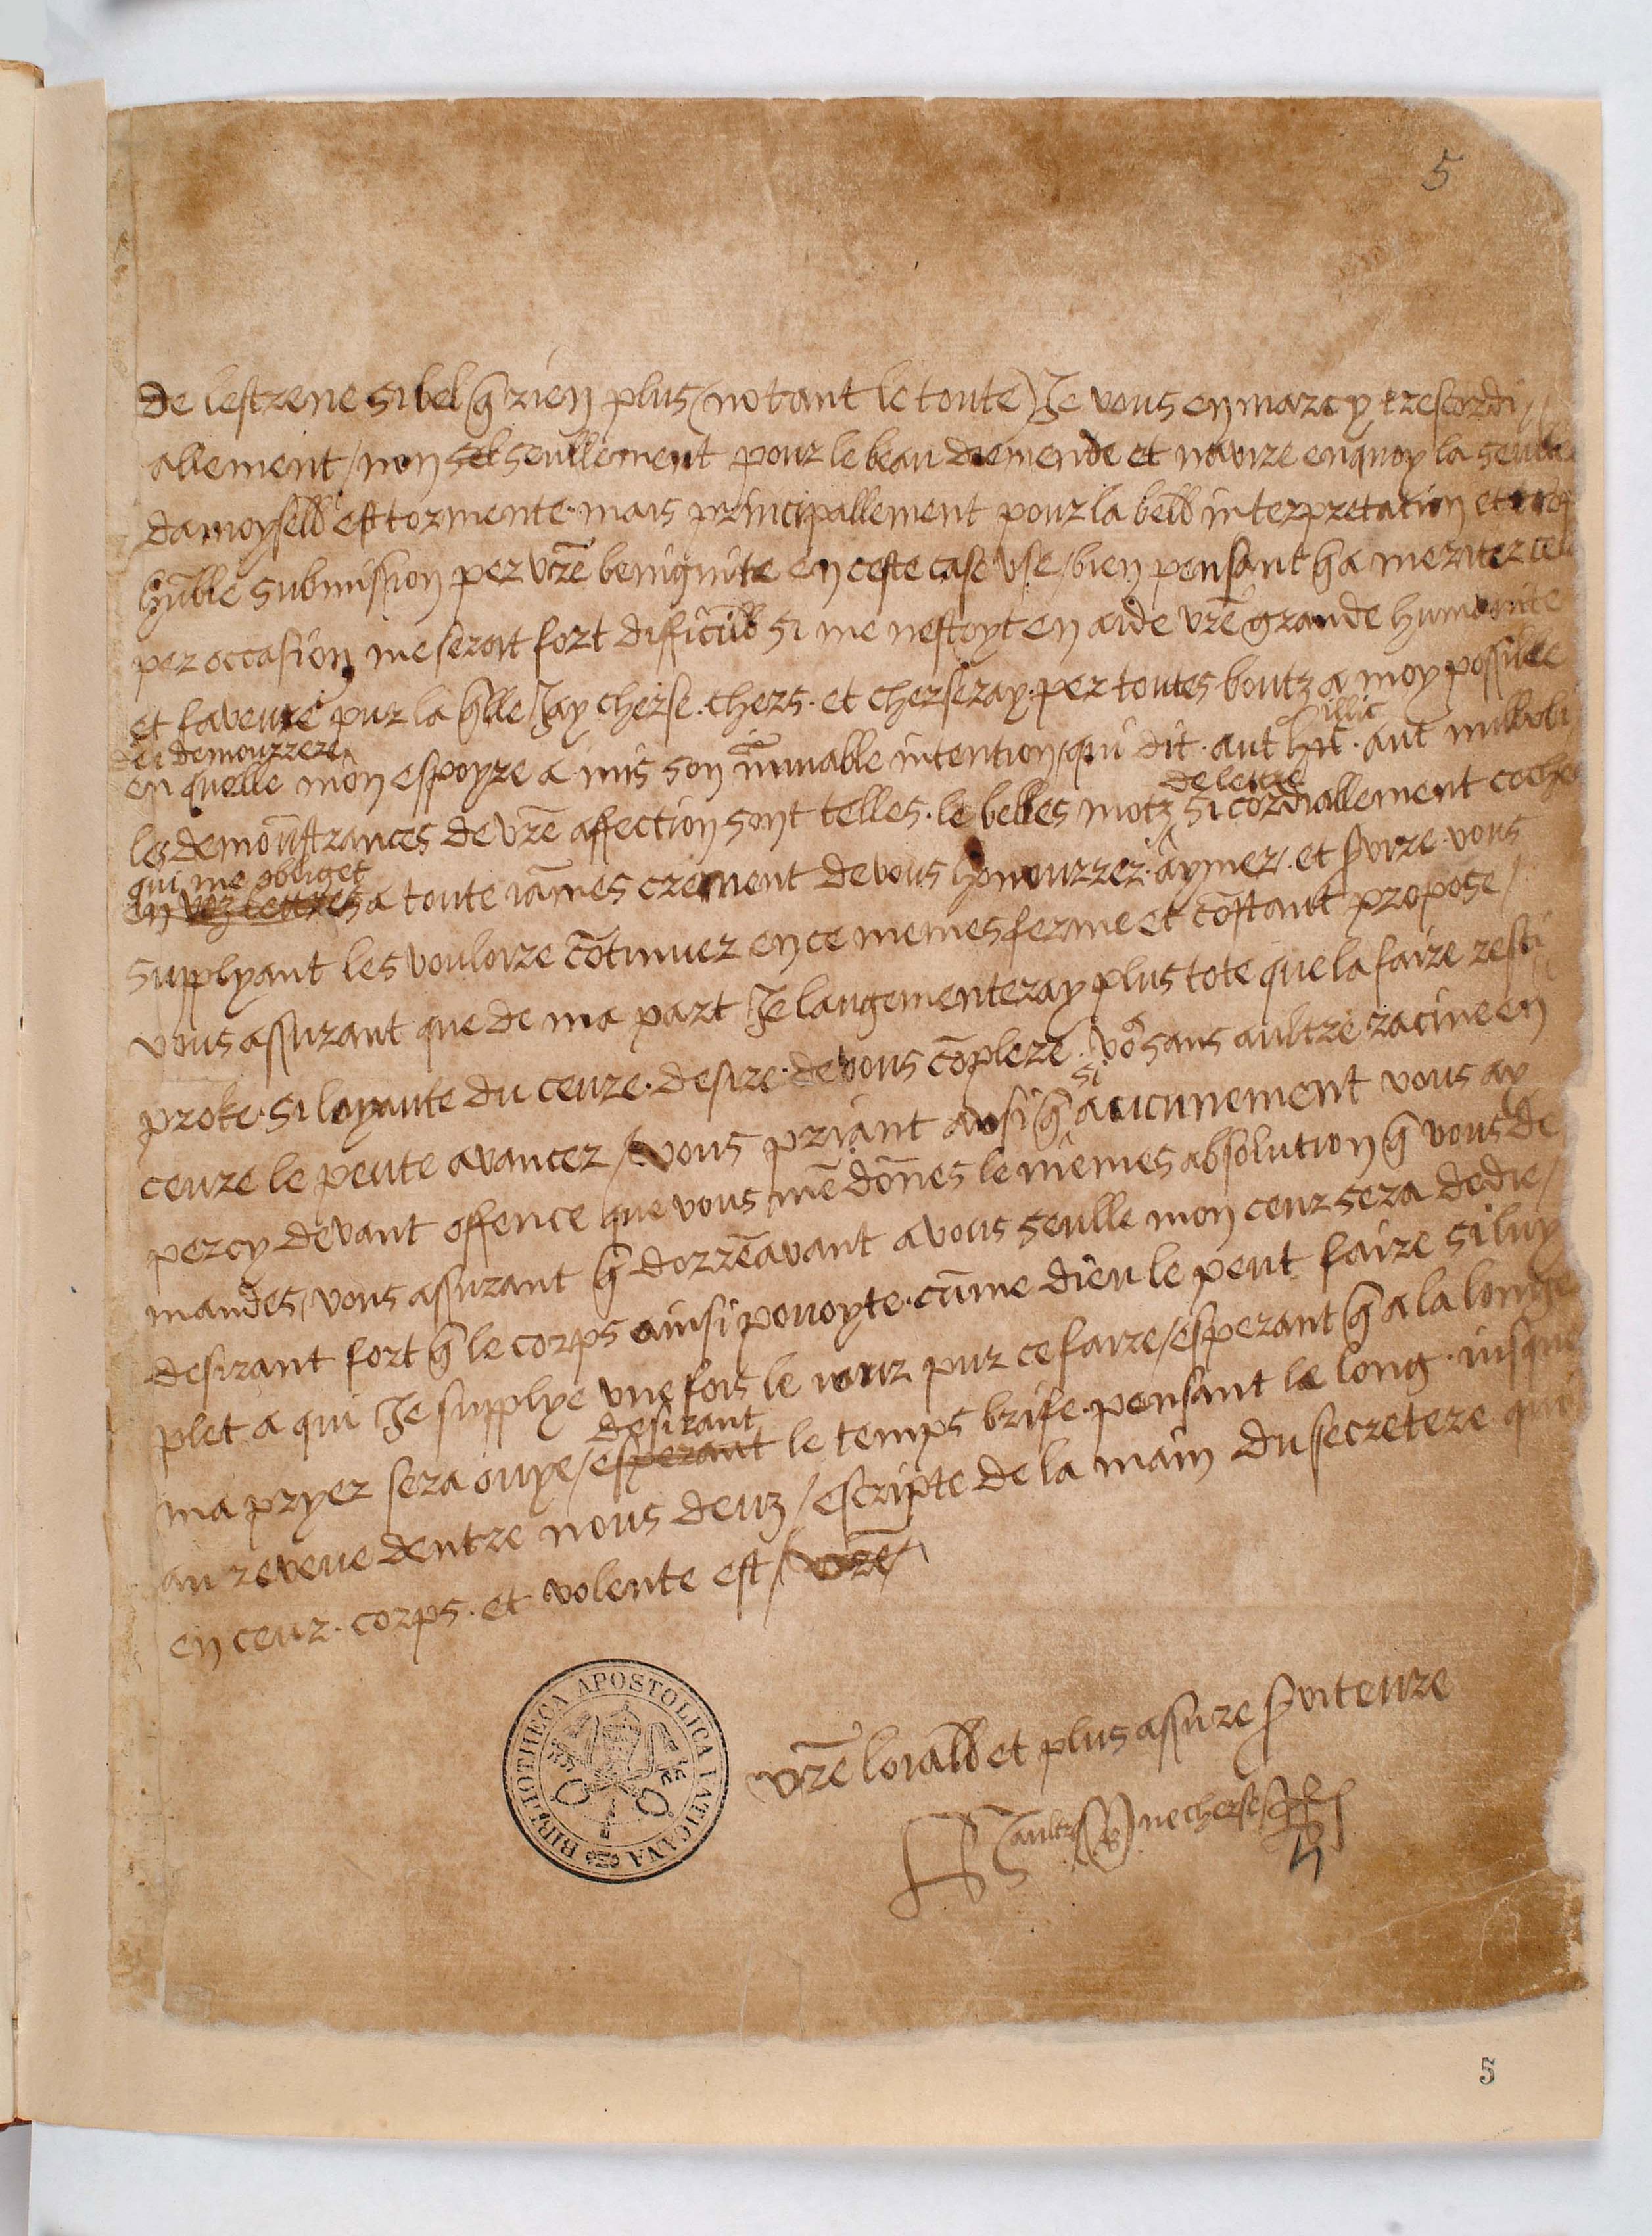 5
de lestrene si bel q̄ rien plus (notant le toute) Je vous en marcy trescordi
allement / non seullement pour le beau diemende et navire en quoy la seulle
damoyselle est tormente. mais principallement pour la belle interpretation et trop
hūble submission per vrē benignite en ceste case use / bien pensant q̄ a meriter cela
per occasion me seroit fort difficulle si me nestoyt en aide vrē grande humanite
et faveure pur la q̄lle Jay cherse. chers. et cherseray. per toutes boutz a moy possible
dei demourrere illic
en quelle mon espoyre a mis son immuable intention / qui dit. aut hic. aut nullibi
de lettre
les demonstrances de vrē affection sont telles. le belles motz si cordiallement coche
qui me obliget
en voz lettres a toute iāmes crement de vous honourrer. aymer. et s̄vire. vous
supplyant les vouloire cōtinuer en ce memes ferme et cōstant propose /
vous assurant que de ma part Je laugementeray plus tote que la faire resi
proke. si loyaute du ceure. desire. de vous cōplere. sans aultre racine en
si
ceure le peute avancer / vous priant ausi q̄ aucunement vous ay
percy devant offence que vous me dōnes le mêmes absolution q̄ vous de
mandes / vous assurant q̄ dorrēavant a vous seulle mon ceur sera dedie /
desirant fort q̄ le corps ainsi pouoyte. cūme dieu le peut faire si luy
plet a qui Je supplye une fois le iour pur ce faire / esperant q̄ a la longe
desirant
ma pryer sera ouye / esperant le temps brife. pensant le long. iusque
au reveue dentre nous deuz / escripte de la main du secretere qui
en ceur. corps. et volente est / vrē /
vrē loialle et plus assure s̄viteure
H aultre AB ne cherse R
BIBLIOTHECA APOSTOLICA VATICANA
5